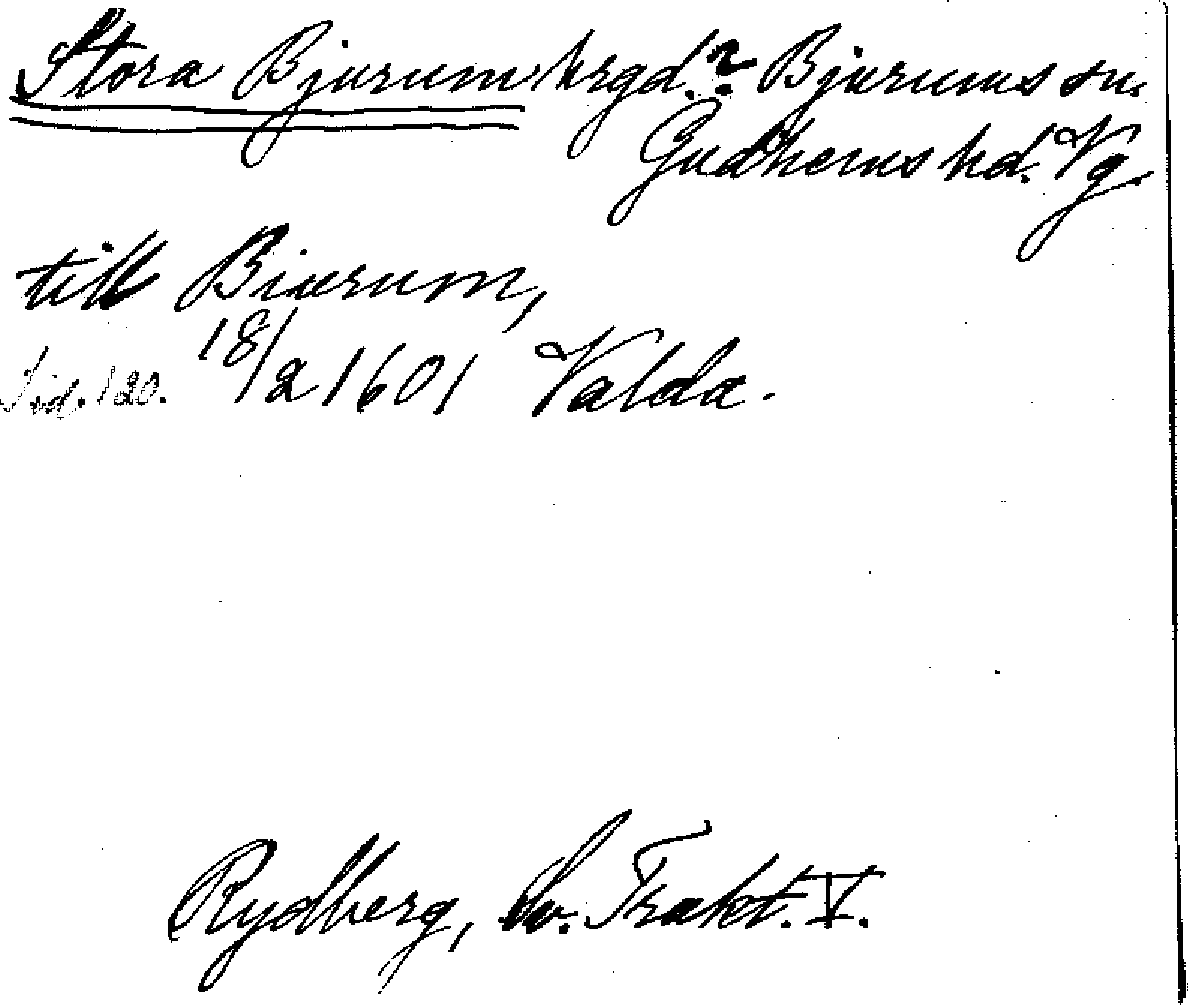 Stora Bjurum hrgd.? Bjurums sn.
Gudhems hd. Vg.
till Biærum,
Sid. 120. 18/2 1601 Valda.
Rydberg, Sv. Trakt. V.